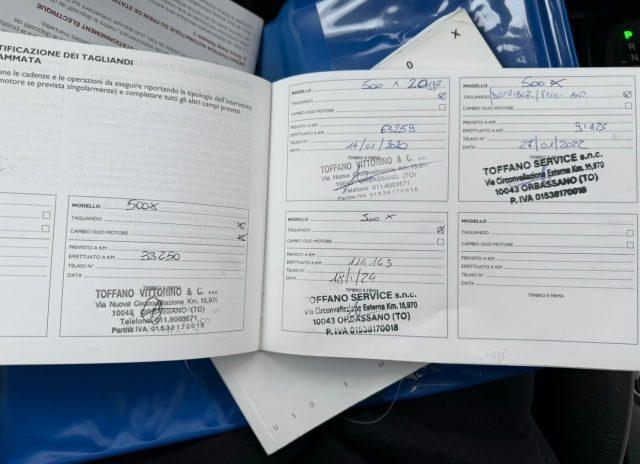 TIFICAZIONE DEI TAGLIANDI
AMMATA
one le cadenze e le operazioni da eseguire riportando la tipologia dell'intervento
motore se prevista singolarmente) e completare tutti gli altri campi previsti.
MODELLO 500X
TAGLIANDO
CAMBIO OLIO MOTORE
PREVISTO A KM
EFFETTUATO A KM 33250
TELAIO N°
DATA
TIMBRO E FIRMA
TOFFANO VITTORINO & C. snc
Via Nuova Circonvallazione Km. 15,970
10043 ORBASSANO (TO)
Telefono 011.9003571
Partita IVA 01538170018
MODELLO 500 X 2.0
TAGLIANDO
CAMBIO OLIO MOTORE
PREVISTO A KM
EFFETTUATO A KM 63259
TELAIO N°
DATA 14/01/2020
TIMBRO E FIRMA
TOFFANO VITTORINO & C. snc
Via Nuova Circonvallazione Km. 15,970
10043 ORBASSANO (TO)
Telefono 011.9003571
Partita IVA 01538170018
MODELLO 500 X
TAGLIANDO
CAMBIO OLIO MOTORE
PREVISTO A KM
EFFETTUATO A KM 114.143
TELAIO N°
DATA 18/1/24
TIMBRO E FIRMA
TOFFANO SERVICE s.n.c.
Via Circonvallazione Esterna Km. 15,970
10043 ORBASSANO (TO)
P. IVA 01538170018
MODELLO 500X
TAGLIANDO DISTRIBUZ/FRENI ANT.
CAMBIO OLIO MOTORE
PREVISTO A KM
EFFETTUATO A KM 91425
TELAIO N°
DATA 27/01/2022
TOFFANO SERVICE s.n.c.
Via Circonvallazione Esterna Km. 15,970
10043 ORBASSANO (TO)
P. IVA 01538170018
MODELLO
TAGLIANDO
CAMBIO OLIO MOTORE
PREVISTO A KM
EFFETTUATO A KM
TELAIO N°
DATA
TIMBRO E FIRMA
X O
USO E M
R
N